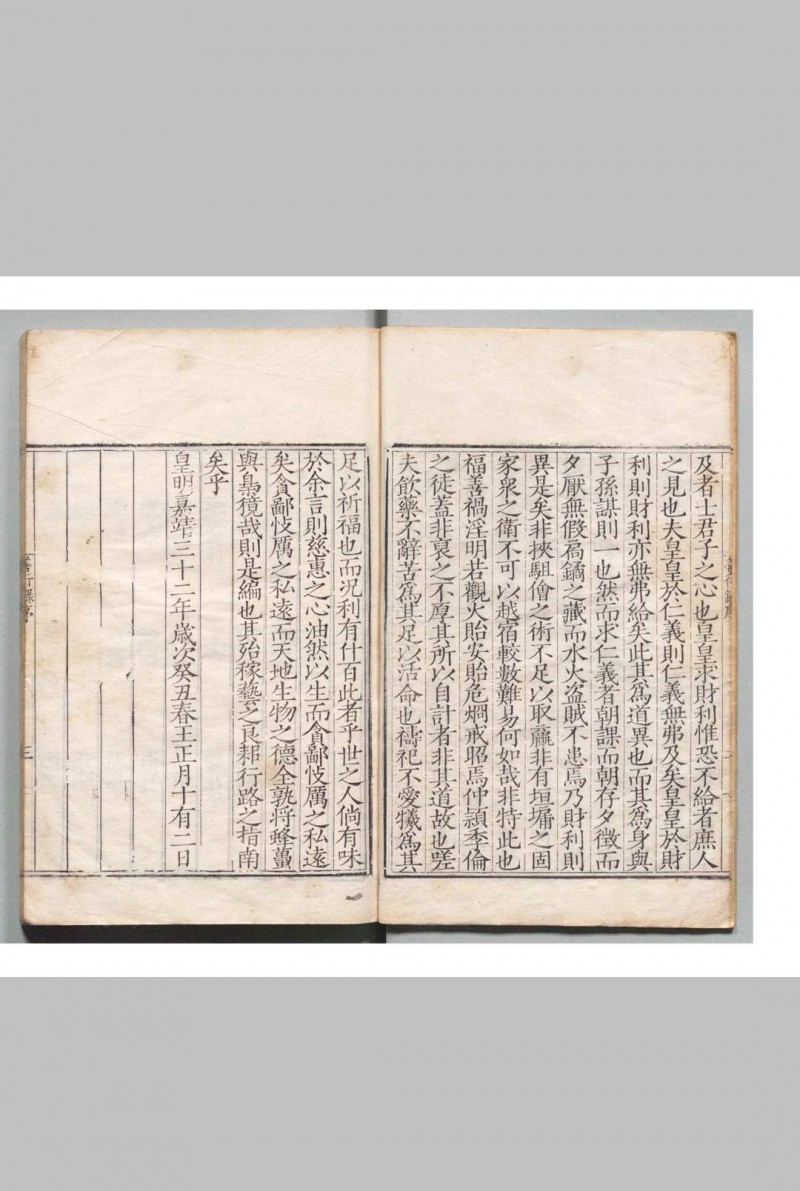 及者士君子之心也皇皇求財利惟恐不給者庶人
之見也夫皇皇於仁義則仁義無弗及矣皇皇於財
利則財利亦無弗給矣此其爲道異也而其爲身與
子孫謀則一也然而求仁義者朝課而朝存夕徵而
夕厭無假扃鐍之藏而水火盗賊不患焉乃財利則
異是矣非挾駔儈之術不足以取贏非有垣墉之固
家衆之衛不可以越宿較數難易何如哉非特此也
福善禍淫明若觀火貽安貽危烱戒昭焉仲頴季倫
之徒蓋非衷之不厚其所以自計者非其道故也嗟
夫飲藥不辭苦爲其足以活命也禱祀不愛犠爲其
足以祈福也而况利有什百此者乎世之人倘有味
於余言則慈惠之心油然以生而貪鄙忮厲之私遠
矣貪鄙忮厲之私遠而天地生物之德全孰將蜂蠆
與梟獍哉則是編也其殆稼藝之良耜行路之指南
矣乎
皇明嘉靖三十二年歲次癸丑春王正月十有二日
行錄序
三